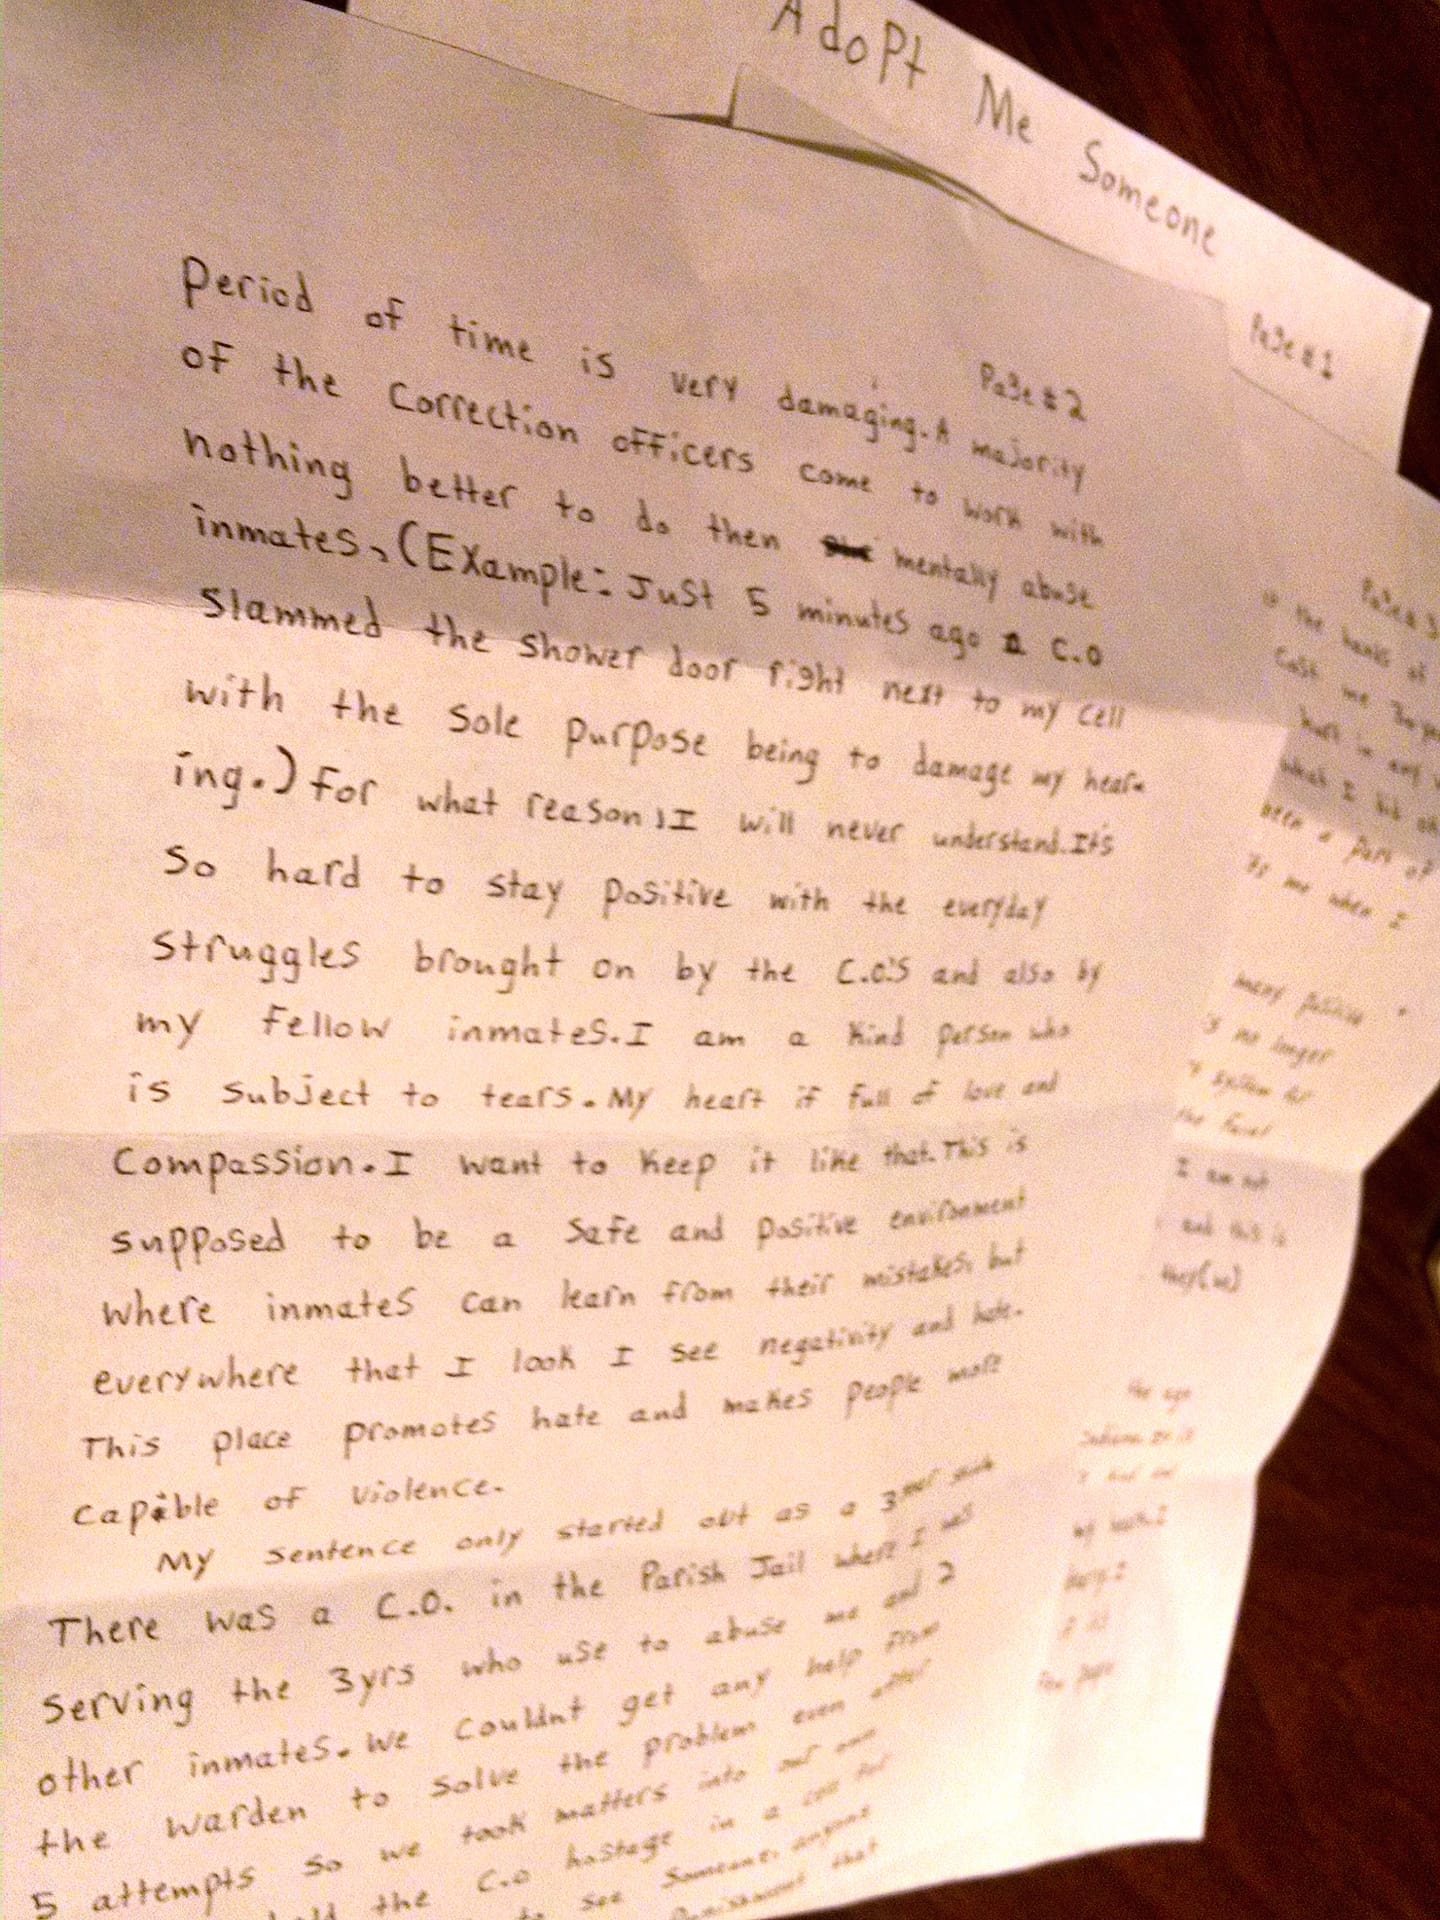 Adopt Me Someone
Page #1
Page #2
Period of time is very damaging. A majority
of the Correction officers come to work with
nothing better to do then mentally abuse
inmates, (Example: Just 5 minutes ago a C.O
slammed the shower door right next to my cell
with the sole purpose being to damage my hear-
ing.) for what reason, I will never understand. It's
so hard to stay positive with the everyday
struggles brought on by the C.O.'s and also by
my fellow inmates. I am a kind person who
is subject to tears. My heart if full of love and
Compassion. I want to keep it like that. This is
supposed to be a safe and positive environment
where inmates can learn from their mistakes, but
everywhere that I look I see negativity and hate.
This place promotes hate and makes people more
capible of violence.
My sentence only started out as a 3
There was a C.O. in the Parish Jail where I was
serving the 3yrs who use to abuse me and 2
other inmates. We couldnt get any help from
the warden to solve the problem even after
5 attempts so we took matters into our own
the C.O hostage in a cell for
to see someone, anyone
that
Page #3
the hands of
Cost me 30
hurt in any
what I did
been a part of
me when I
many positive
no longer
system
the
I am not
and this is
they(us)
the age